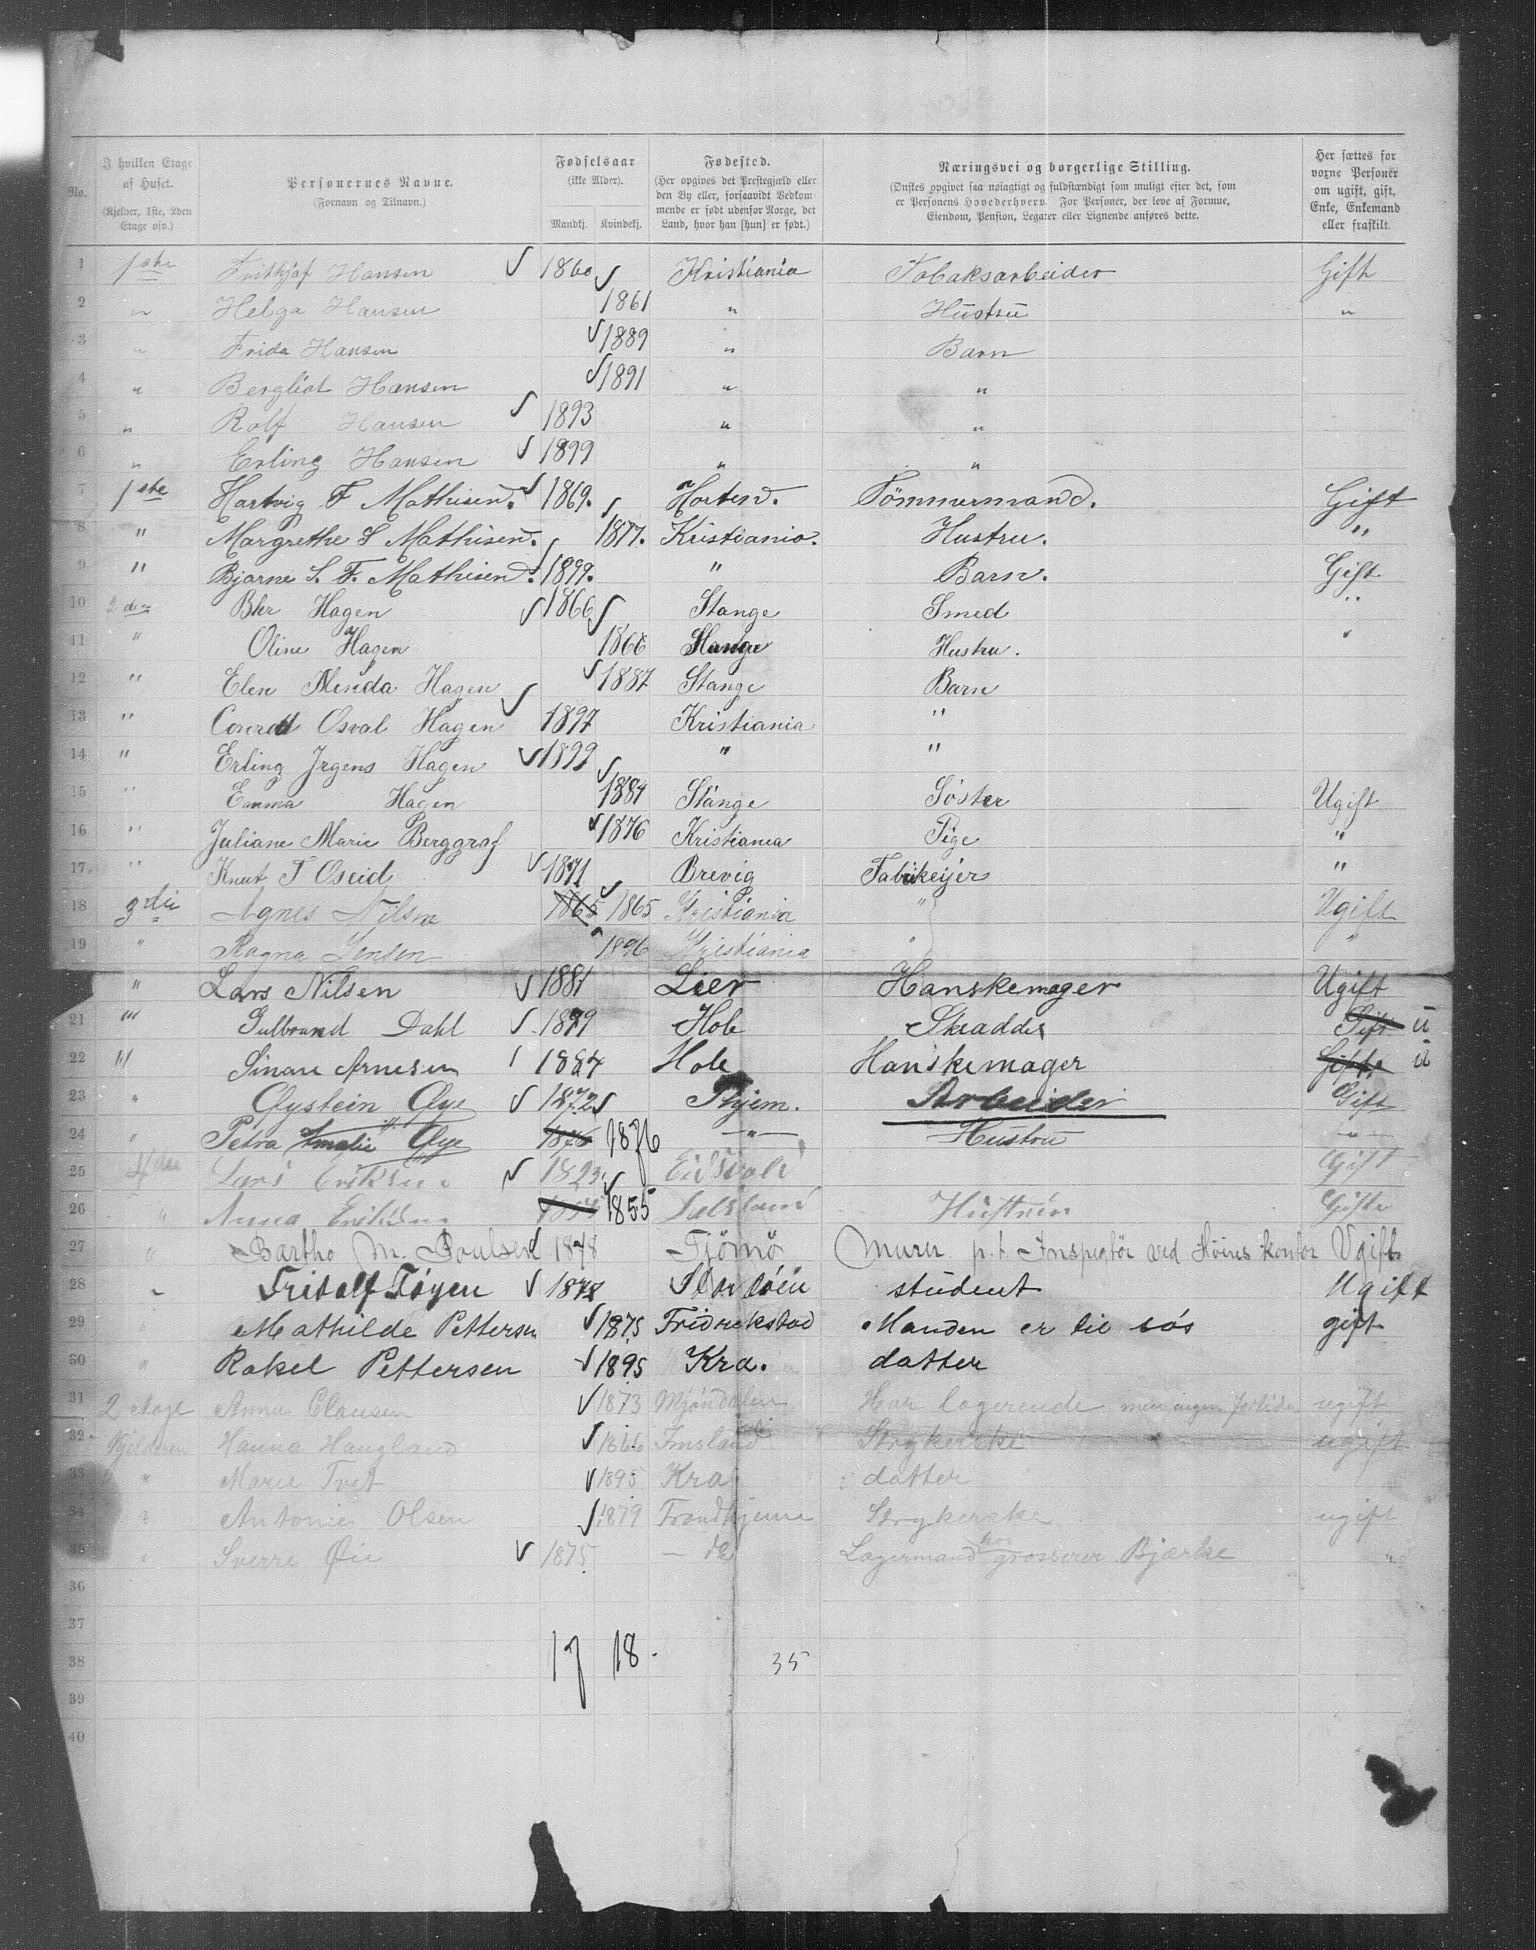 No. I hvilken Etage af Huset. (Kjelder, 1ste, 2den Etage osv.) Personernes Navne. (Fornavn og Tilnavn.) Fødselsaar (ikke Alder). Mandkj. Kvindekj. Fødested. (Her opgives det Prestegjæld eller den By eller, forsaavidt Vedkommende er født udenfor Norge, det Land, hvor han [hun] er født.) Næringsvei og borgerlige Stilling. (Ønskes opgivet saa nøiagtigt og fuldstændigt som muligt efter det, som er Personens Hovederhverv. For Personer, der leve af Formue, Eiendom, Pension, Legater eller Lignende anføres dette. Her sættes for voxne Personer om ugift, gift, Enke, Enkemand eller fraskilt.
1 1ste Frithjof Hansen 1860 Kristiania Tobaksarbeider Gift
2 " Helga Hansen 1861 " Hustru "
3 " Frida Hansen 1889 " Barn
4 " Bergliot Hansen 1891 " "
5 " Rolf Hansen 1893 " "
6 " Erling Hansen 1899 " "
7 1ste Hartvig F Mathisen. 1869. Horten. Tømmermand. Gift
8 " Margrethe S Mathisen. 1877. Kristiania. Hustru. "
9 " Bjarne S. F. Mathisen. 1899. " Barn. Gift
10 2den Hagen 1866 Stange Smed "
11 " Oline Hagen 1866 Stange Hustru. "
12 " Elen Hagen 1887 Stange Barn
13 " Osval Hagen 1897 Kristiania "
14 " Erling Jrgens Hagen 1899 " "
15 " Emma Hagen 1884 Stange Søster Ugift
16 " Juliane Marie Berggraf 1876 Kristiania Pige "
17 " Knut T Oseid 1871 Brevig "
18 3die Agnes Nilsen 1865 1865 Kristiania " Ugift
19 " Ragna Jensen 1896 Kristiania " "
" Lars Nilsen 1881 Lier Hanskemager Ugift
21 " Gulbrand Dahl 1879 Hole Skrædder Gift u
22 " Arnesen 1884 Hole Hanskemager Gifte u
23 " Øystein Øye 1872 Thjem. Arbeider Gift
24 " Petra Amalie Øye 1876 1876 —"— Hustru —"—
25 4de Lars Eriksen Eidsvold Gift
26 " Anna Eriksen 1855 1855 Hustru Gifte
27 " Bartho M. Poulsen 1878 Tjömö Murer p.t. Inspektör ved kontor Ugift
28 " Fritolf Töyen 1878 Stordøen student Ugift
29 " Mathilde Pettersen 1875 Fridrekstad Manden er til søs gift
30 " Rakel Pettersen 1895 Kra. datter
31 2 Etage Anna Clausen 1873 Mjöndalen Har logerende men ingen ugift
32 Kjelderen Hanna Haugland 1866 Imsland Strykerske ugift
33 " Marie Tvet 1895 Kra datter
34 " Antonie Olsen 1879 Trondhjem Strykerske ugift
35 " Sverre Øie 1875 — do Lagermand hos grosserer Bjærke "
36
37
38 17 18. 35
39
40